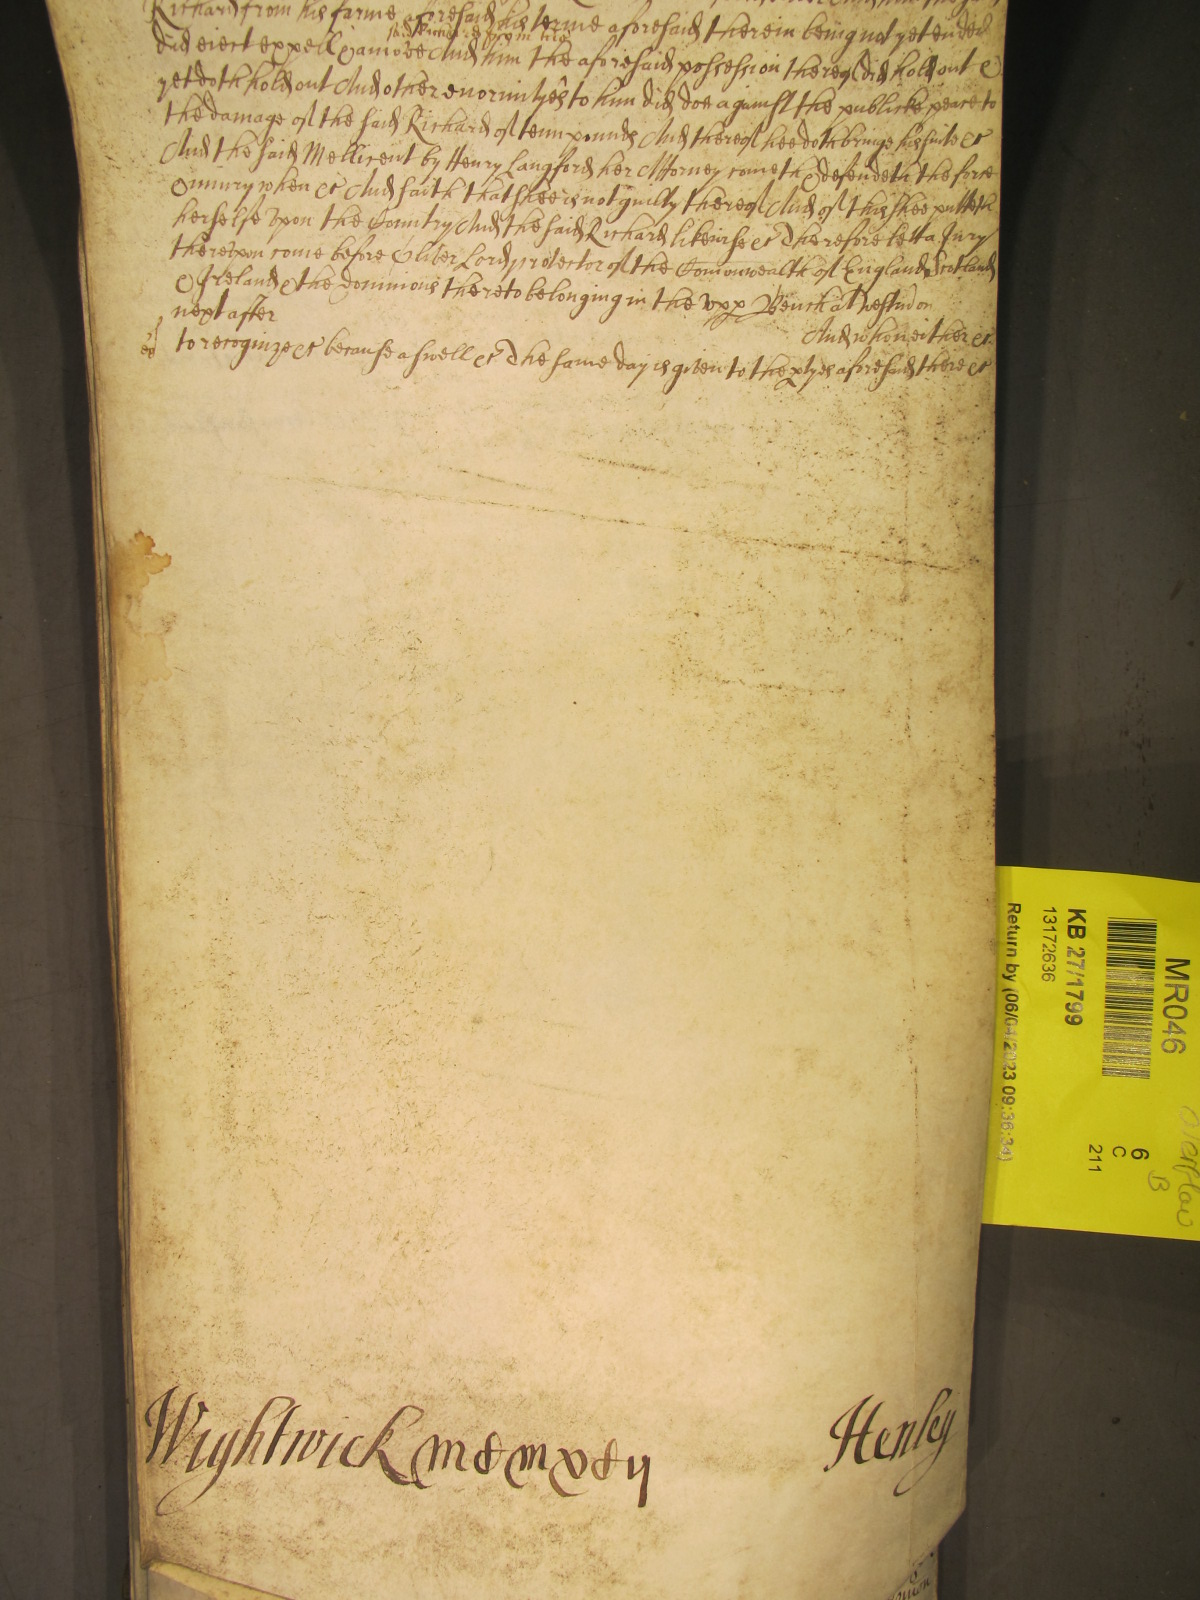 Richard from his farme aforesaid his terme aforesaid therein being not yet ended
did eject expell & amove And him the aforesaid possession thereof did hold out &
yet doth hold out And other enormityes to him did doe against the publicke peace to
the damage of the said Richard of tenn pounds And thereof hee doth bringe his suite &c
And the said Mellicent by Henry Langford her Attorney cometh & defendeth the force
& iniury when &c And saith that shee is not guilty thereof And of this shee putteth
herselfe vpon the Country And the said Richard likewise &c Therefore lett a Jury
therevpon come before Oliver Lord protector of the Comonwealth of England Scotland
& Ireland & the dominions thereto belonging in the vpp Bench at Westm on
next after
And who neither &c
to recognize &c because aswell &c The same day is given to the ptyes aforesaid there &c
Wightwick
Henley
MR046
KB 27/1799
13172636
Return by (06/04/2023 09:36:34)
6
C
211
Overflow
B